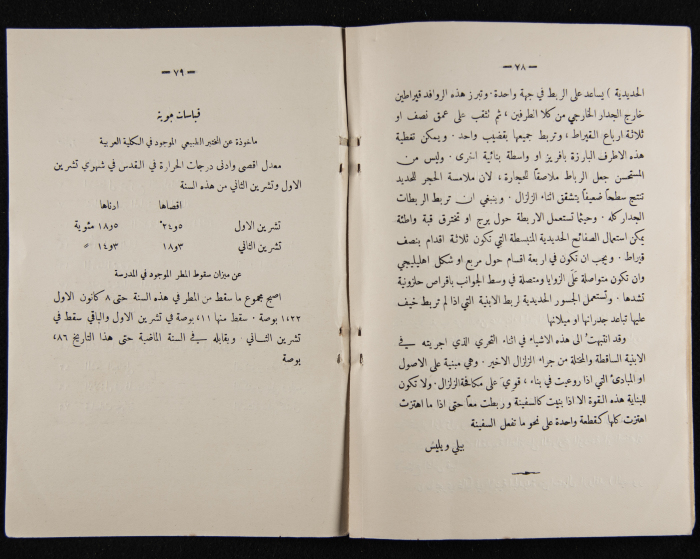 — ٧٨ —
الحديدية ) يساعد على الربط في جهة واحدة . وتبرز هذه الروافد قيراطين
خارج الجدار الخارجي من كلا الطرفين ، ثم تثقب على عمق نصف او
ثلاثة ارباع القيراط ، وتربط جميعها بقضيب واحد . ويمكن تغطية
هذه الاطراف البارزة بافريز او واسطة بنائية اخرى . وليس من
المستحسن جعل الرباط ملاصقاً للحجارة ، لان ملامسة الحجر للحديد
تنتج سطحاً ضعيفاً يتشقق اثناء الزلزال . وينبغي ان تربط الربطات
الجدار كله . وحيثما تستعمل الاربطة حول برج او مخترق قبة واطئة
يمكن استعمال الصفائح الحديدية المنبسطة التي تكون ثلاثة اقدام بنصف
قيراط . ويجب ان تكون في اربعة اقسام حول مربع او شكل اهليليجي
وان تكون متواصلة على الزوايا ومتصلة في وسط الجوانب باقراص حلزونية
تشدها . وتستعمل الجسور الحديدية لربط الابنية التي اذا لم تربط خيف
عليها تباعد جدرانها او ميلانها
وقد انتبهت الى هذه الاشياء في اثناء التحري الذي اجريته في
الابنية الساقطة والمختلة من جراء الزلزال الاخير . وهي مبنية على الاصول
او المبادئ التي اذا روعيت في بناء ، قوي على مكافحة الزلزال . ولا تكون
للبناية هذه القوة الا اذا بنيت كالسفينة وربطت معاً حتى اذا ما اهتزت
اهتزت كلها كقطعة واحدة على نحو ما تفعل السفينة
بيلي ويليس
— ٧٩ —
قياسات جوية
ماخوذة عن المختبر الطبيعي الموجود في الكلية العربية
معدل اقصى وادنى درجات الحرارة في القدس في شهري تشرين
الاول وتشرين الثاني من هذه السنة
اقصاها ادناها
تشرين الاول ٢٤٫٥ ١٨٫٥ مئوية
تشرين الثاني ١٨٫٣ ١٤٫٣ "
عن ميزان سقوط المطر الموجود في المدرسة
اصبح مجموع ما سقط من المطر في هذه السنة حتى ٨ كانون الاول
١٫٢٢ بوصة . سقط منها ١١٫ بوصة في تشرين الاول والباقي سقط في
تشرين الثاني . ويقابله في السنة الماضية حتى هذا التاريخ ٨٦٫
بوصة